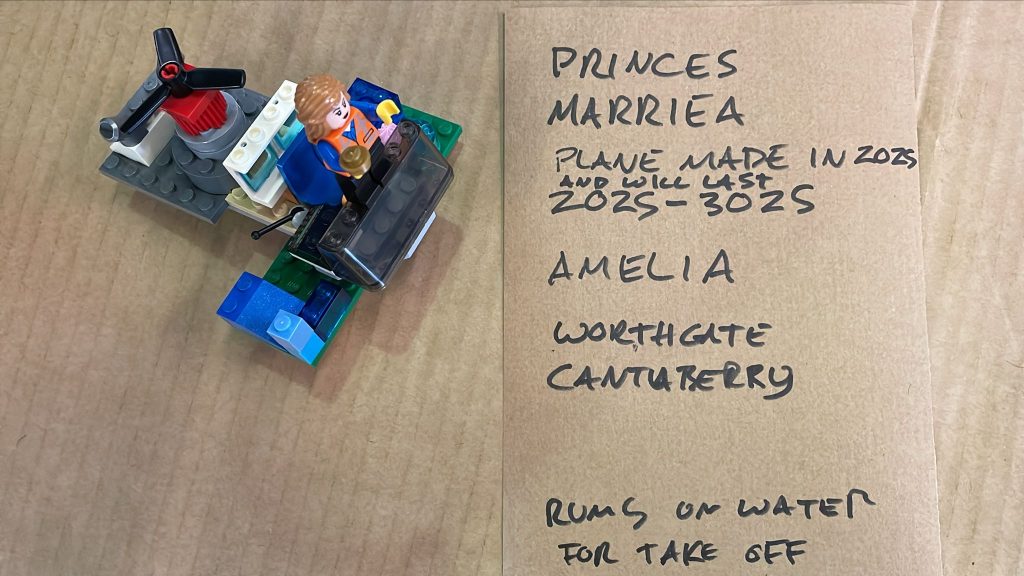 PRINCES
MARRIEA
PLANE MADE IN 2025
AND WILL LAST
2025-3025
AMELIA
WORTHGATE
CANTIABERRY
RUMS ON WATER
FOR TAKE OFF